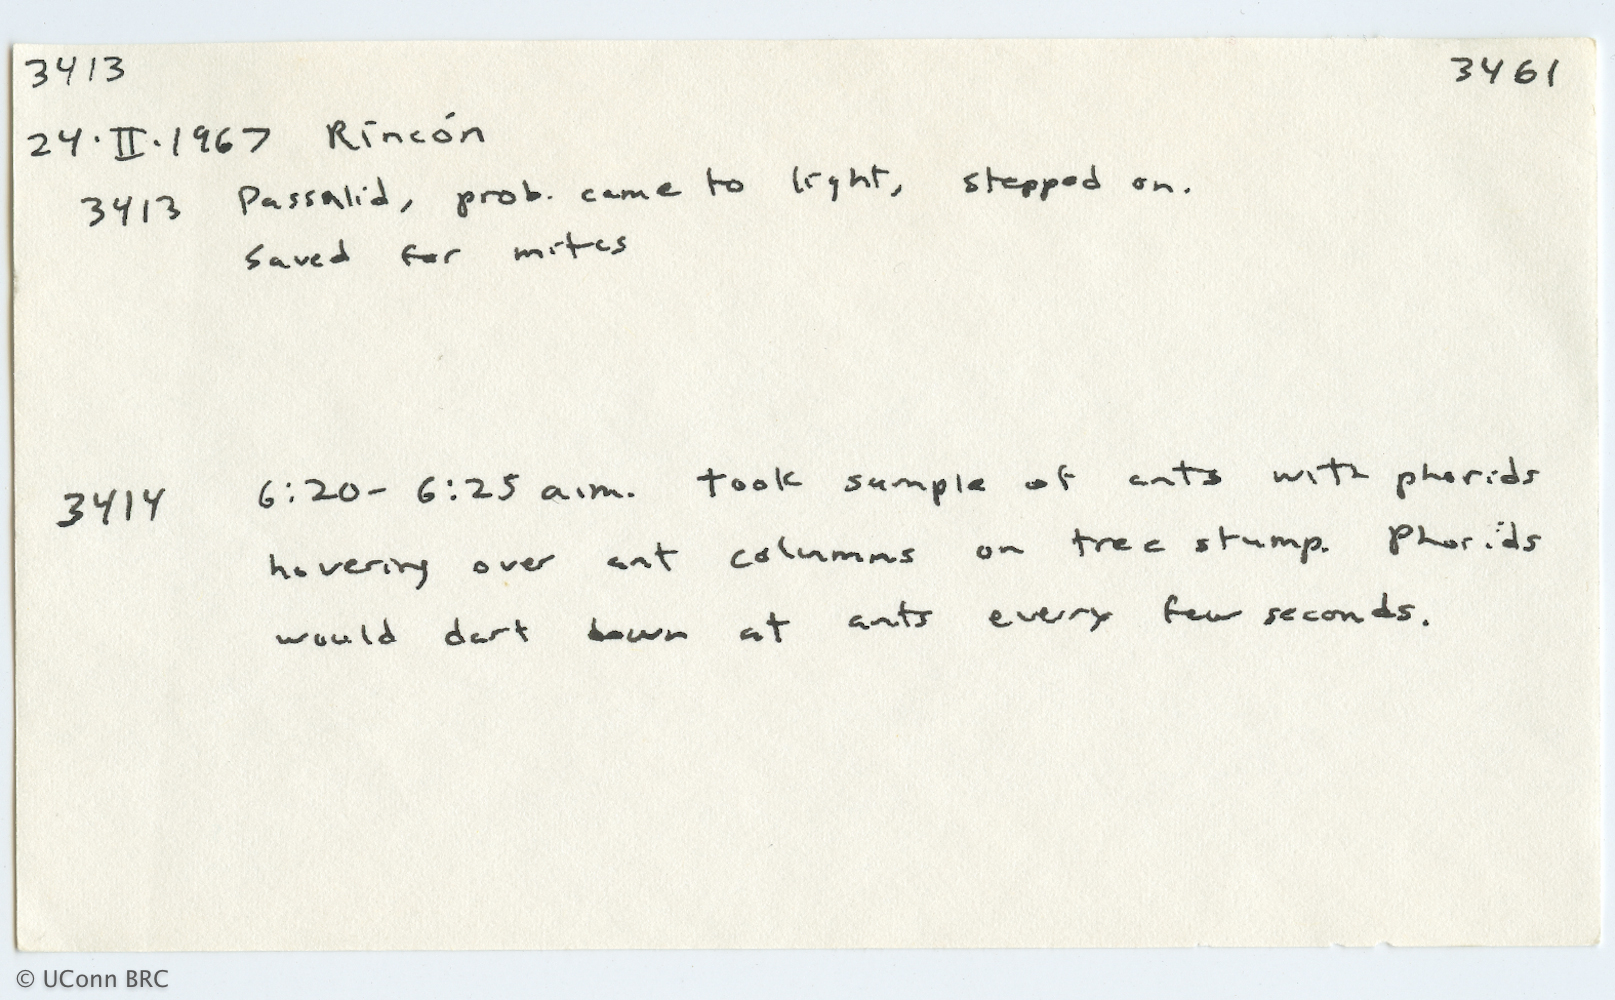 3413 3461
24·II·1967 Rincón
3413 Passalid, prob. came to light, stepped on.
Saved for mites
3414 6:20- 6:25 a.m. Took sample of ants with phorids
hovering over ant columns on tree stump. Phorids
would dart down at ants every few seconds.
© UConn BRC